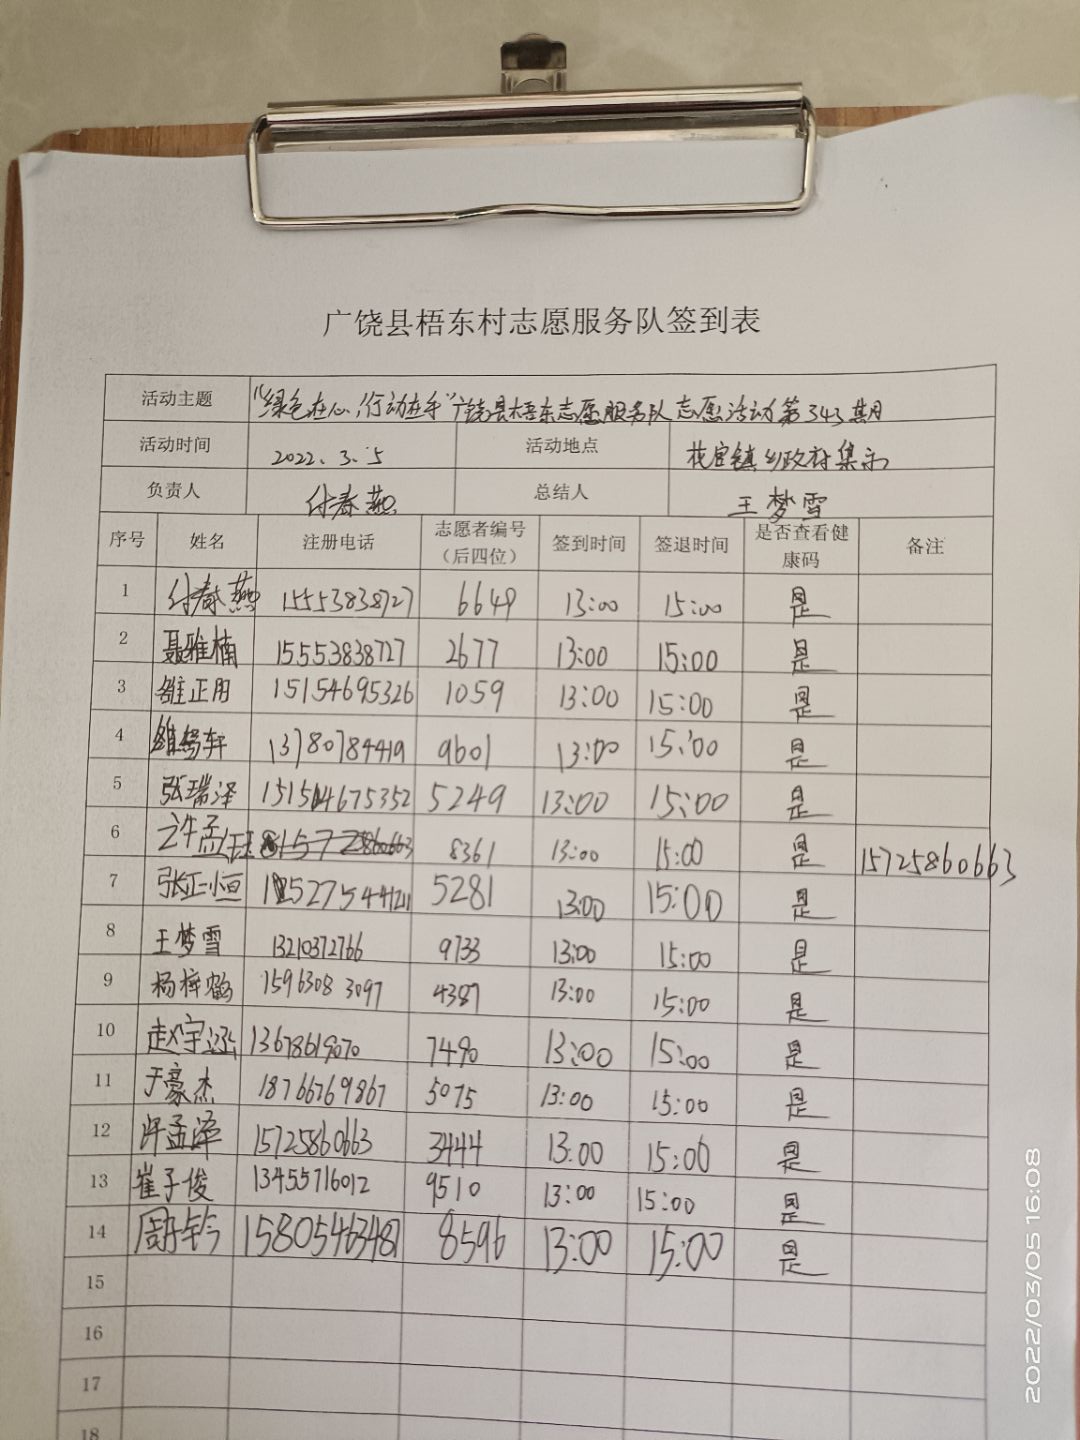 广饶县梧东村志愿服务队签到表
活动主题 "绿色在心,行动在手"广饶县梧东志愿服务队志愿活动第343期
活动时间 2022.3.5 活动地点 花官镇乡政府集示
负责人 付春燕 总结人 王梦雪
序号 姓名 注册电话 志愿者编号（后四位） 签到时间 签退时间 是否查看健康码 备注
1 付春燕 15553838727 6649 13:00 15:00 是
2 聂雅楠 15553838727 2677 13:00 15:00 是
3 雒正用 15154695326 1059 13:00 15:00 是
4 13780784419 9601 13:00 15:00 是
5 张瑞泽 5249 13:00 15:00 是
6 许孟 8361 13:00 15:00 是 15725860663
7 张正恒 5281 13:00 15:00 是
8 王梦雪 13210372766 9733 13:00 15:00 是
9 杨梓鹤 15963083097 4387 13:00 15:00 是
10 赵宇涵 13678619070 7490 13:00 15:00 是
11 于豪杰 18766769867 5075 13:00 15:00 是
12 许孟泽 15725860663 3444 13:00 15:00 是
13 崔子俊 13455716012 9510 13:00 15:00 是
14 15805463481 8596 13:00 15:00 是
15
16
17
18
2022/03/05 16:08